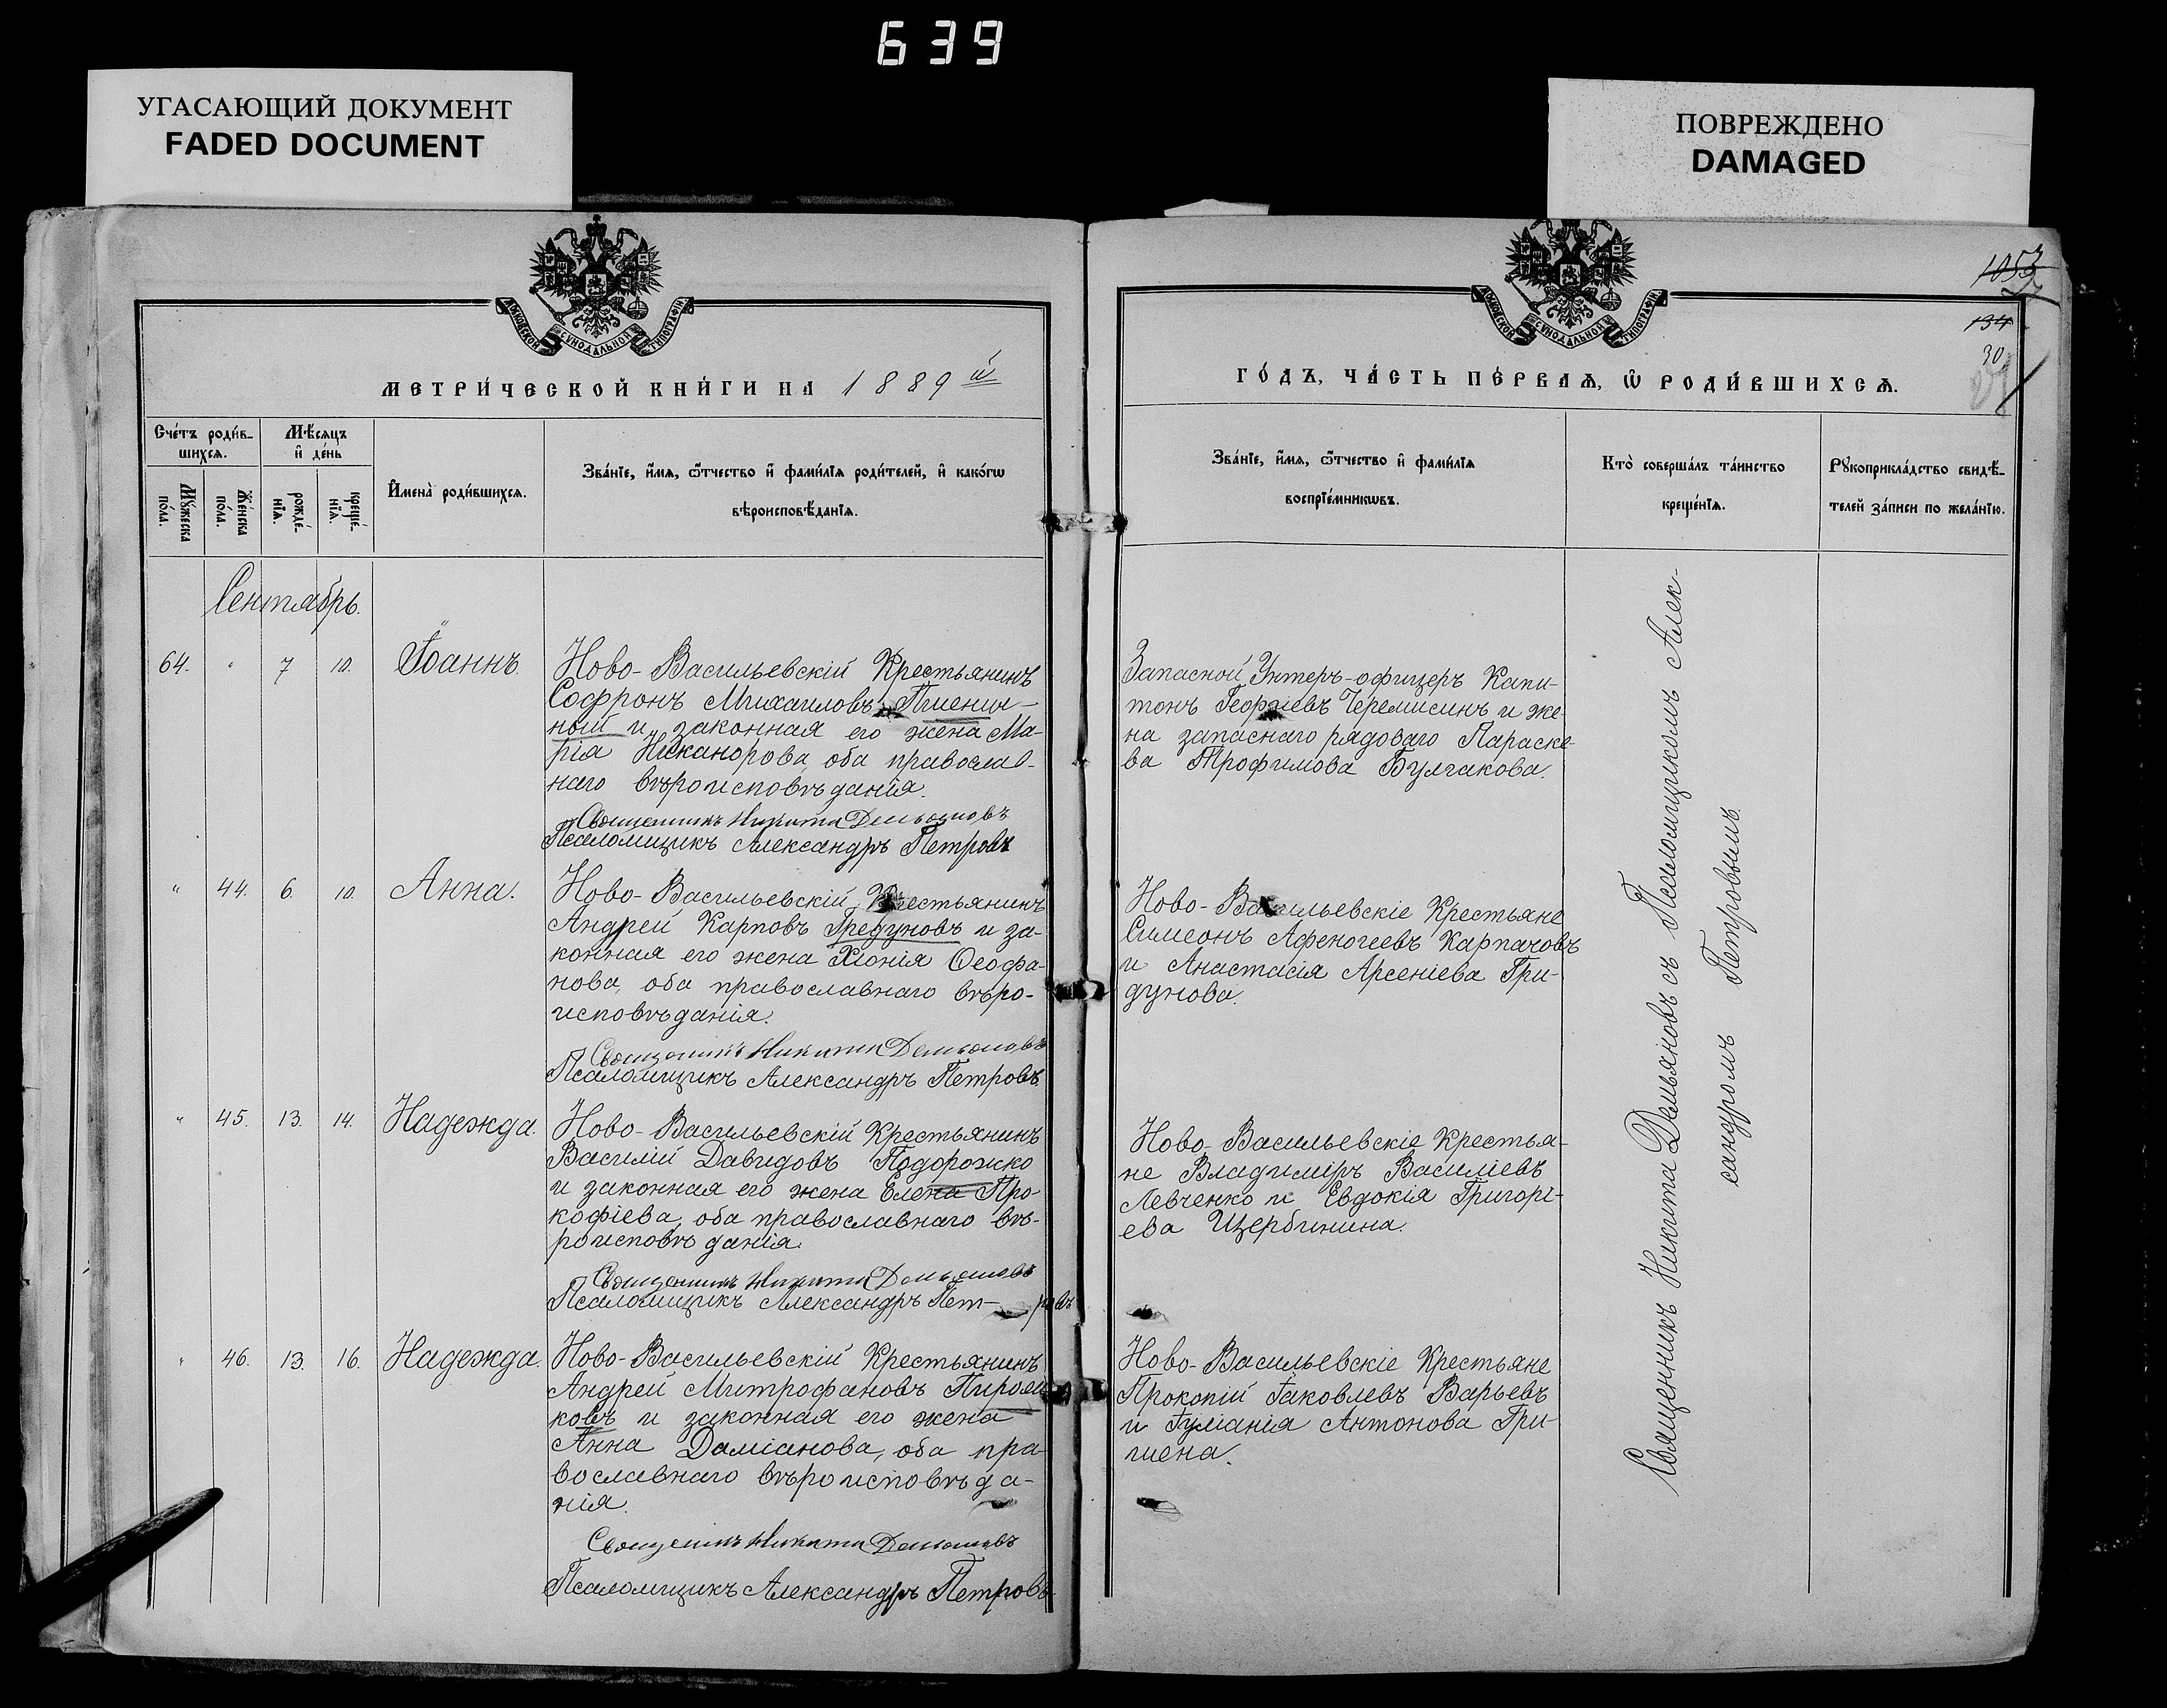 639
УГАСАЮЩИЙ ДОКУМЕНТ
FADED DOCUMENT
ПОВРЕЖДЕНО
DAMAGED
МОСКОВСКОЙ СѴНОДАЛЬНОЙ ТИПОГРАФІИ
МЕТРИ́ЧЕСКОЙ КНИ́ГИ НА 1889 й
Сче́тъ роди́в-
шихсѧ.
Мѣ́сѧцъ
и҆ де́нь
И҆мена̀ роди́вшихсѧ.
Зва́нїе, и҆́мѧ, ѻ҆́тчество и҆ фами́лїѧ роди́телей, и҆ како́гѡ
вѣроисповѣ́данїѧ.
Мꙋ́жеска
по́ла.
Же́нска
по́ла.
рожде́-
нїѧ.
креще́-
нїѧ.
Сентябрь.
64. " 7 10. Іоаннъ.
Ново-Васильевскій Крестьянинъ
Софронъ Михаиловъ Пшенич-
ный и законная его жена Ма-
рія Никанорова, оба православ-
наго вѣроисповѣданія.
Священникъ Никита Демьяновъ
Псаломщикъ Александръ Петровъ
" 44. 6. 10. Анна.
Ново-Васильевскій Крестьянинъ
Андрей Карповъ Гредуновъ и за-
конная его жена Хіонія Ѳеофа-
нова, оба православнаго вѣро-
исповѣданія.
Священникъ Никита Демьяновъ
Псаломщикъ Александръ Петровъ
" 45. 13. 14. Надежда.
Ново-Васильевскій Крестьянинъ
Василій Давидовъ Подорожко
и законная его жена Елена Про-
кофіева, оба православнаго вѣ-
роисповѣданія.
Священникъ Никита Демьяновъ
Псаломщикъ Александръ Пет-ровъ
" 46. 13. 16. Надежда.
Ново-Васильевскій Крестьянинъ
Андрей Митрофановъ
ковъ и законная его жена
Анна Даміанова, оба пра-
вославнаго вѣроисповѣда-
нія.
Священникъ Никита Демьяновъ
Псаломщикъ Александръ Петровъ
МОСКОВСКОЙ СѴНОДАЛЬНОЙ ТИПОГРАФІИ
1053
134
30
ГО́ДЪ, ЧА́СТЬ ПЕ́РВАѦ, Ѽ РОДИ́ВШИХСѦ.
Зва́нїе, и҆́мѧ, ѻ҆́тчество и҆ фами́лїѧ
воспрїе́мникѡвъ.
Кто̀ соверша́лъ та́инство
креще́нїѧ.
Рꙋкоприкла́дство свидѣ́-
телей за́писи по жела́нїю.
Запасной Унтеръ-офицеръ Капи-
тонъ Георгіевъ Черемисинъ и же-
на запаснаго рядоваго Параске-
ва Трофимова Булгакова.
Ново-Васильевскіе Крестьяне
Симеонъ Афеногеевъ Карпачовъ
и Анастасія Арсеніева Гри-
дунова.
Ново-Васильевскіе Крестья-
не Владиміръ Василіевъ
Левченко и Евдокія Григорі-
ева Щербинина.
Ново-Васильевскіе Крестьяне
Прокопій Іаковлевъ Варьевъ
и Іуліанія Антонова Гри-
шена.
Священникъ Никита Демьяновъ съ Псаломщикомъ Алек-
сандромъ Петровымъ.